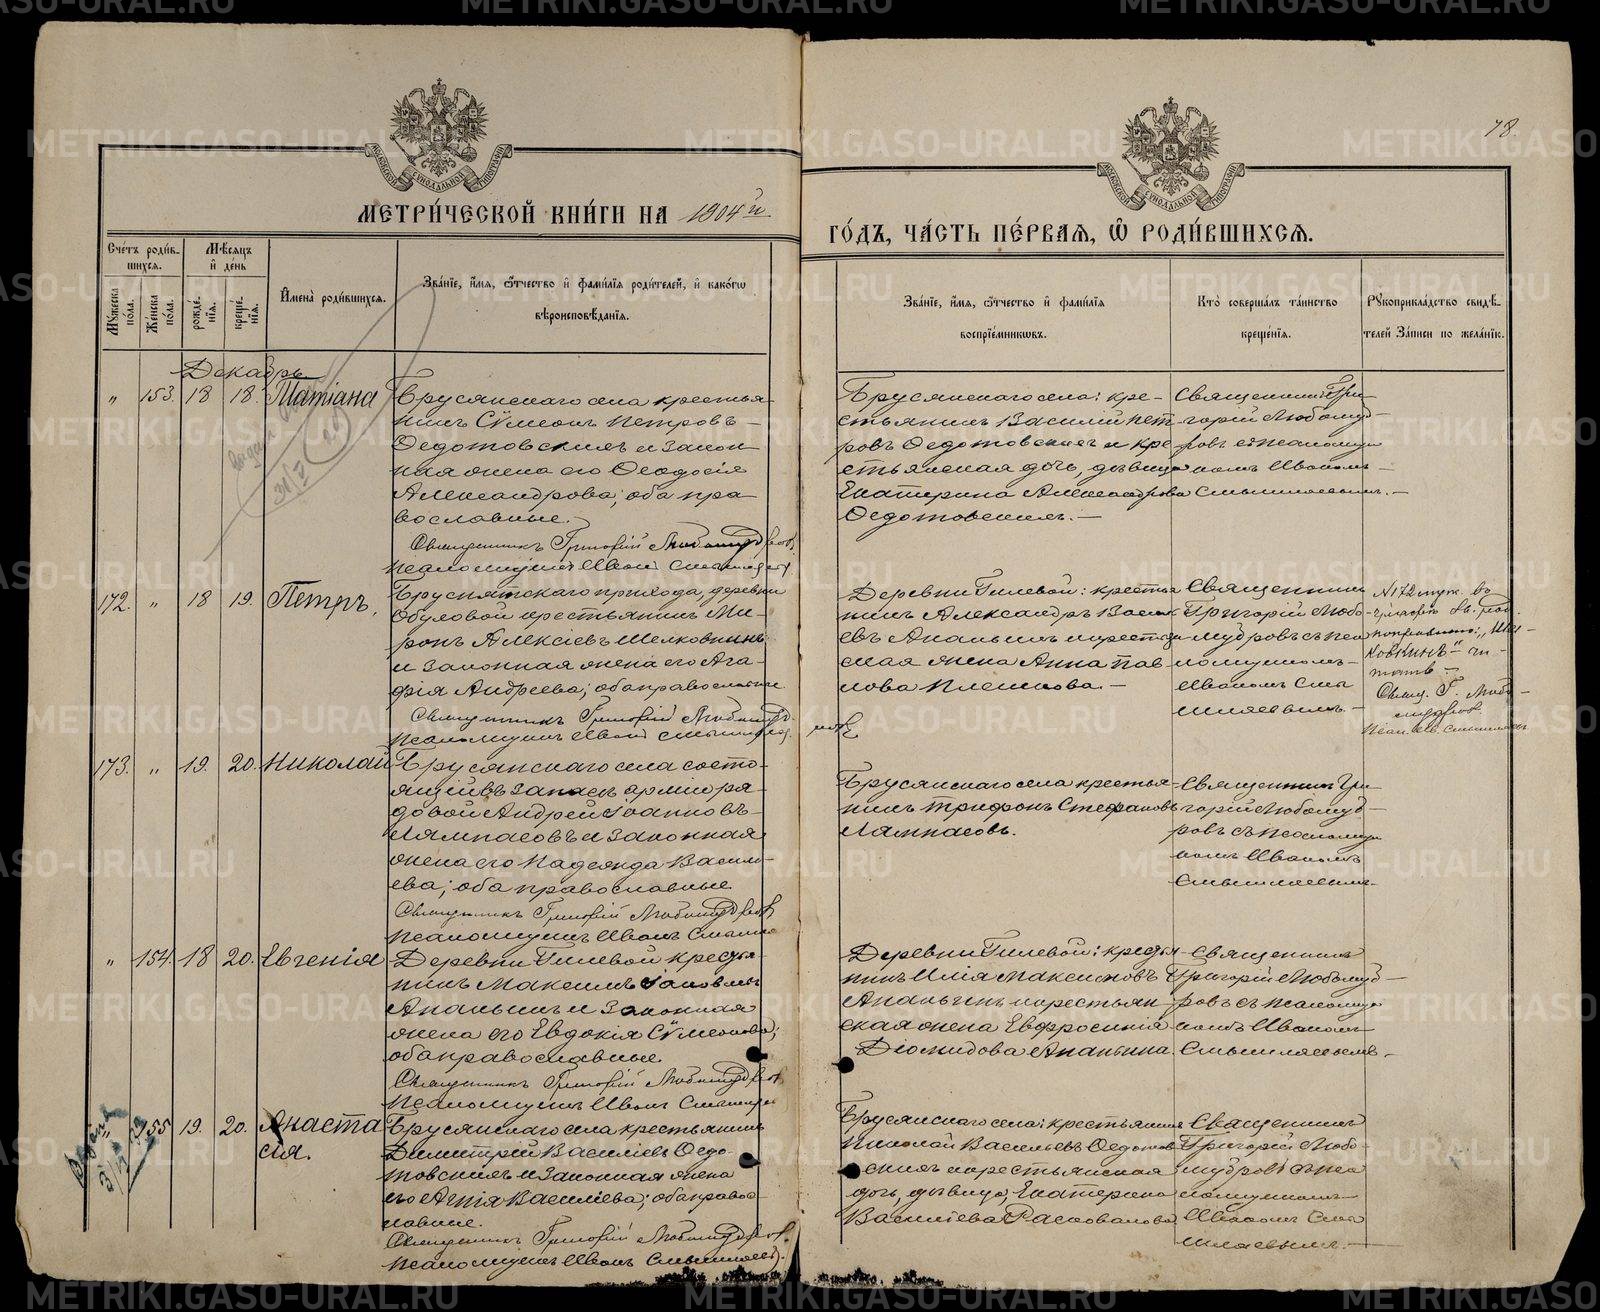 78.
МОСКОВСКОЙ СѴНОДАЛЬНОЙ ТИПОГРАФІИ
МОСКОВСКОЙ СѴНОДАЛЬНОЙ ТИПОГРАФІИ
МЕТРИ́ЧЕСКОЙ КНИ́ГИ НА 1904й
ГО́ДЪ, ЧА́СТЬ ПЕ́РВАѦ, Ѡ҆ РОДИ́ВШИХСѦ.
Сче́тъ роди́в-
шихсѧ.
Му́жеска по́ла.
Же́нска по́ла.
Мѣ́сѧцъ
и҆ де́нь
рожде́-
нїѧ.
креще́-
нїѧ.
И҆мена̀ роди́вшихсѧ.
Зва́нїе, и҆́мѧ, ѻ҆́тчество и҆ фами́лїѧ роди́телей, и҆ како́гѡ
вѣроисповѣ́данїѧ.
Зва́нїе, и҆́мѧ, ѻ҆́тчество и҆ фами́лїѧ
воспрїе́мникѡвъ.
Кто̀ соверша́лъ та́инство
креще́нїѧ.
Рꙋкоприкла́дство свидѣ́-
телей за́писи по жела́нїю.
Декабрь
" 153. 18 18. Татіана
Брусянскаго села крестья-
нинъ Сѵмеонъ Петровъ
Ѳедотовскихъ и закон-
ная жена его Ѳеодосія
Александрова; оба пра-
вославные.
Священникъ Григорій Любомудровъ
Псаломщикъ Иванъ Смышляевъ
Брусянскаго села: кре-
стьянинъ Василій Пет-
ровъ Ѳедотовскихъ и кре-
стьянская дочь, дѣвица
Екатерина Александрова
Ѳедотовскихъ.
Священникъ Гри-
горій Любомуд-
ровъ съ псаломщи-
комъ Иваномъ
Смышляевымъ.
172. " 18 19. Петръ,
Бруснятскаго прихода, деревни
Обуховой крестьянинъ Ми-
ронъ Алексіевъ Шелковкинъ
и законная жена его Ага-
фія Андреева; оба православные
Священникъ Григорій Любомуд-
ровъ
Псаломщикъ Иванъ Смышляевъ.
Деревни Гилевой: крестья
нинъ Александръ Васильевъ
Ананьинъ и крестьян-
ская жена Анна Пав-
лова Плешкова.
Священникъ
Григорій Любо-
мудровъ съ пса-
ломщикомъ
Иваномъ Смы
шляевымъ.
№ 172
"Шел-
ковкинъ" чи-
тать
Свящ. Г. Любо-
мудровъ
Псал. Ив. Смышляевъ
173. " 19. 20. Николай
Брусянскаго села состо-
ящій въ запасѣ арміи ря-
довой Андрей Іоанновъ
Лямпасовъ и законная
жена его Надежда Василь-
ева; оба православные
Священникъ Григорій Любомудровъ
Псаломщикъ Иванъ Смышля
Брусянскаго села крестья-
нинъ Трифонъ Стефановъ
Лампасовъ.
Священникъ Гри-
горій Любомуд-
ровъ съ псаломщи
комъ Иваномъ
Смышляевымъ.
" 154. 18 20. Евгенія
Деревни Гилевой крестья-
нинъ Максимъ Іаковлевъ
Ананьинъ и законная
жена его Евдокія Сѵмеонова;
оба православные.
Священникъ Григорій Любомудровъ
Псаломщикъ Иванъ Смышляевъ
Деревни Гилевой: крестья
нинъ Илія Максимовъ
Ананьинъ и крестьян-
ская жена Евфросинія
Діомидова Ананьина.
Священникъ
Григорій Любомуд-
ровъ съ псаломщи
комъ Иваномъ
Смышляевымъ.
" 155 19. 20. Анаста
сія.
Брусянскаго села крестьянинъ
Димитрій Василіевъ Ѳедо-
товскихъ и законная жена
его Агнія Василіева; оба правос-
лавные.
Священникъ Григорій Любомудровъ.
Псаломщикъ Иванъ Смышляевъ.
Брусянскаго села: крестьянинъ
Николай Васильевъ Ѳедотов
скихъ и крестьянская
дочь, дѣвица, Екатерина
Василіева Расковалова
Священникъ
Григорій Любо-
мудровъ съ пса
ломщикомъ
Иваномъ Смы
шляевымъ.
METRIKI.GASO-URAL.RU